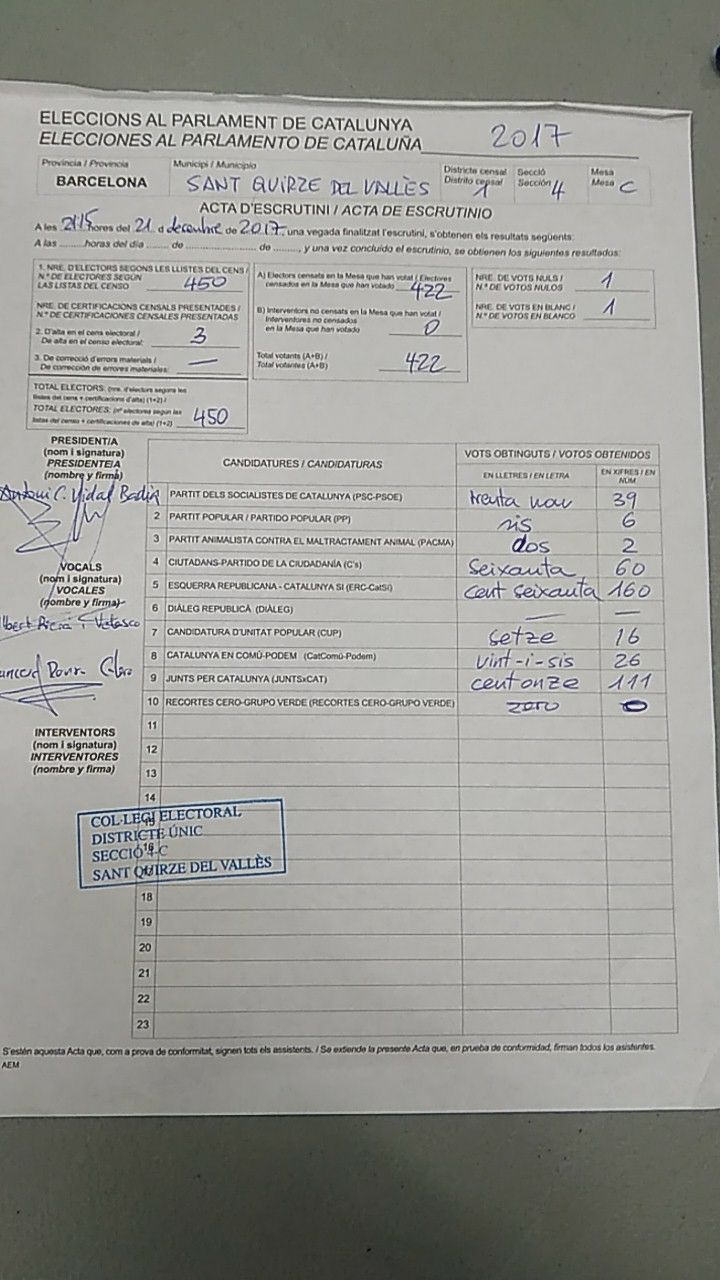 ELECCIONS AL PARLAMENT DE CATALUNYA
ELECCIONES AL PARLAMENTO DE CATALUÑA 2017
Provincia / Provincia Municipi / Municipio Districte censal Secció Mesa
Distrito censal Sección Mesa
BARCELONA SANT QUIRZE DEL VALLÈS 1 4 C
ACTA D'ESCRUTINI / ACTA DE ESCRUTINIO
A les 21'15 hores del 21 d decembre de 2017, una vegada finalitzat l'escrutini, s'obtenen els resultats següents:
A las ........ horas del día ....... de ........................ de ........, y una vez concluido el escrutinio, se obtienen los siguientes resultados:
1. NRE. D'ELECTORS SEGONS LES LLISTES DEL CENS /
N.º DE ELECTORES SEGÚN
LAS LISTAS DEL CENSO 450
NRE. DE CERTIFICACIONS CENSALS PRESENTADES /
N.º DE CERTIFICACIONES CENSALES PRESENTADAS
2. D'alta en el cens electoral /
De alta en el censo electoral: 3
3. De correcció d'errors materials /
De corrección de errores materiales: —
TOTAL ELECTORS: (nre. d'electors segons les
llistes del cens + certificacions d'alta) (1+2) /
TOTAL ELECTORES: (nº electores según las
listas del censo + certificaciones de alta) (1+2) 450
A) Electors censats en la Mesa que han votat / Electores
censados en la Mesa que han votado 422
B) Interventors no censats en la Mesa que han votat /
Interventores no censados
en la Mesa que han votado 0
Total votants (A+B) /
Total votantes (A+B) 422
NRE. DE VOTS NULS /
N.º DE VOTOS NULOS 1
NRE. DE VOTS EN BLANC /
N.º DE VOTOS EN BLANCO 1
PRESIDENT/A
(nom i signatura)
PRESIDENTE/A
(nombre y firma)
Antoni C. Vidal Badia
VOCALS
(nom i signatura)
VOCALES
(nombre y firma)
INTERVENTORS
(nom i signatura)
INTERVENTORES
(nombre y firma)
CANDIDATURES / CANDIDATURAS VOTS OBTINGUTS / VOTOS OBTENIDOS
EN LLETRES / EN LETRA EN XIFRES / EN NÚM
PARTIT DELS SOCIALISTES DE CATALUNYA (PSC-PSOE) trenta nou 39
2 PARTIT POPULAR / PARTIDO POPULAR (PP) sis 6
3 PARTIT ANIMALISTA CONTRA EL MALTRACTAMENT ANIMAL (PACMA) dos 2
4 CIUTADANS-PARTIDO DE LA CIUDADANÍA (C's) Seixanta 60
5 ESQUERRA REPUBLICANA - CATALUNYA SI (ERC-CatSí) cent seixanta 160
6 DIÀLEG REPUBLICÀ (DIÀLEG) — —
7 CANDIDATURA D'UNITAT POPULAR (CUP) setze 16
8 CATALUNYA EN COMÚ-PODEM (CatComú-Podem) vint-i-sis 26
9 JUNTS PER CATALUNYA (JUNTSxCAT) cent onze 111
10 RECORTES CERO-GRUPO VERDE (RECORTES CERO-GRUPO VERDE) zero 0
11
12
13
14
15
16
17
18
19
20
21
22
23
COL·LEGI ELECTORAL
DISTRICTE ÚNIC
SECCIÓ 4-C
SANT QUIRZE DEL VALLÈS
S'estén aquesta Acta que, com a prova de conformitat, signen tots els assistents. / Se extiende la presente Acta que, en prueba de conformidad, firman todos los asistentes.
AEM